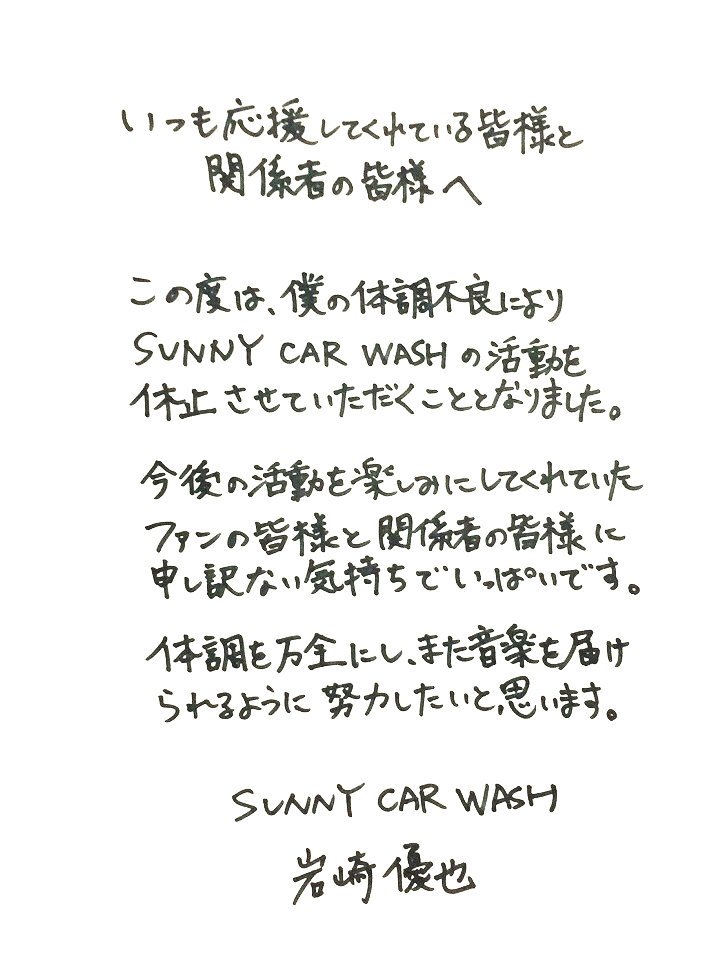 いつも応援してくれている皆様と
関係者の皆様へ
この度は、僕の体調不良により
SUNNY CAR WASHの活動を
休止させていただくこととなりました。
今後の活動を楽しみにしてくれていた
ファンの皆様と関係者の皆様に
申し訳ない気持ちでいっぱいです。
体調を万全にし、また音楽を届け
られるように努力したいと思います。
SUNNY CAR WASH
岩崎優也